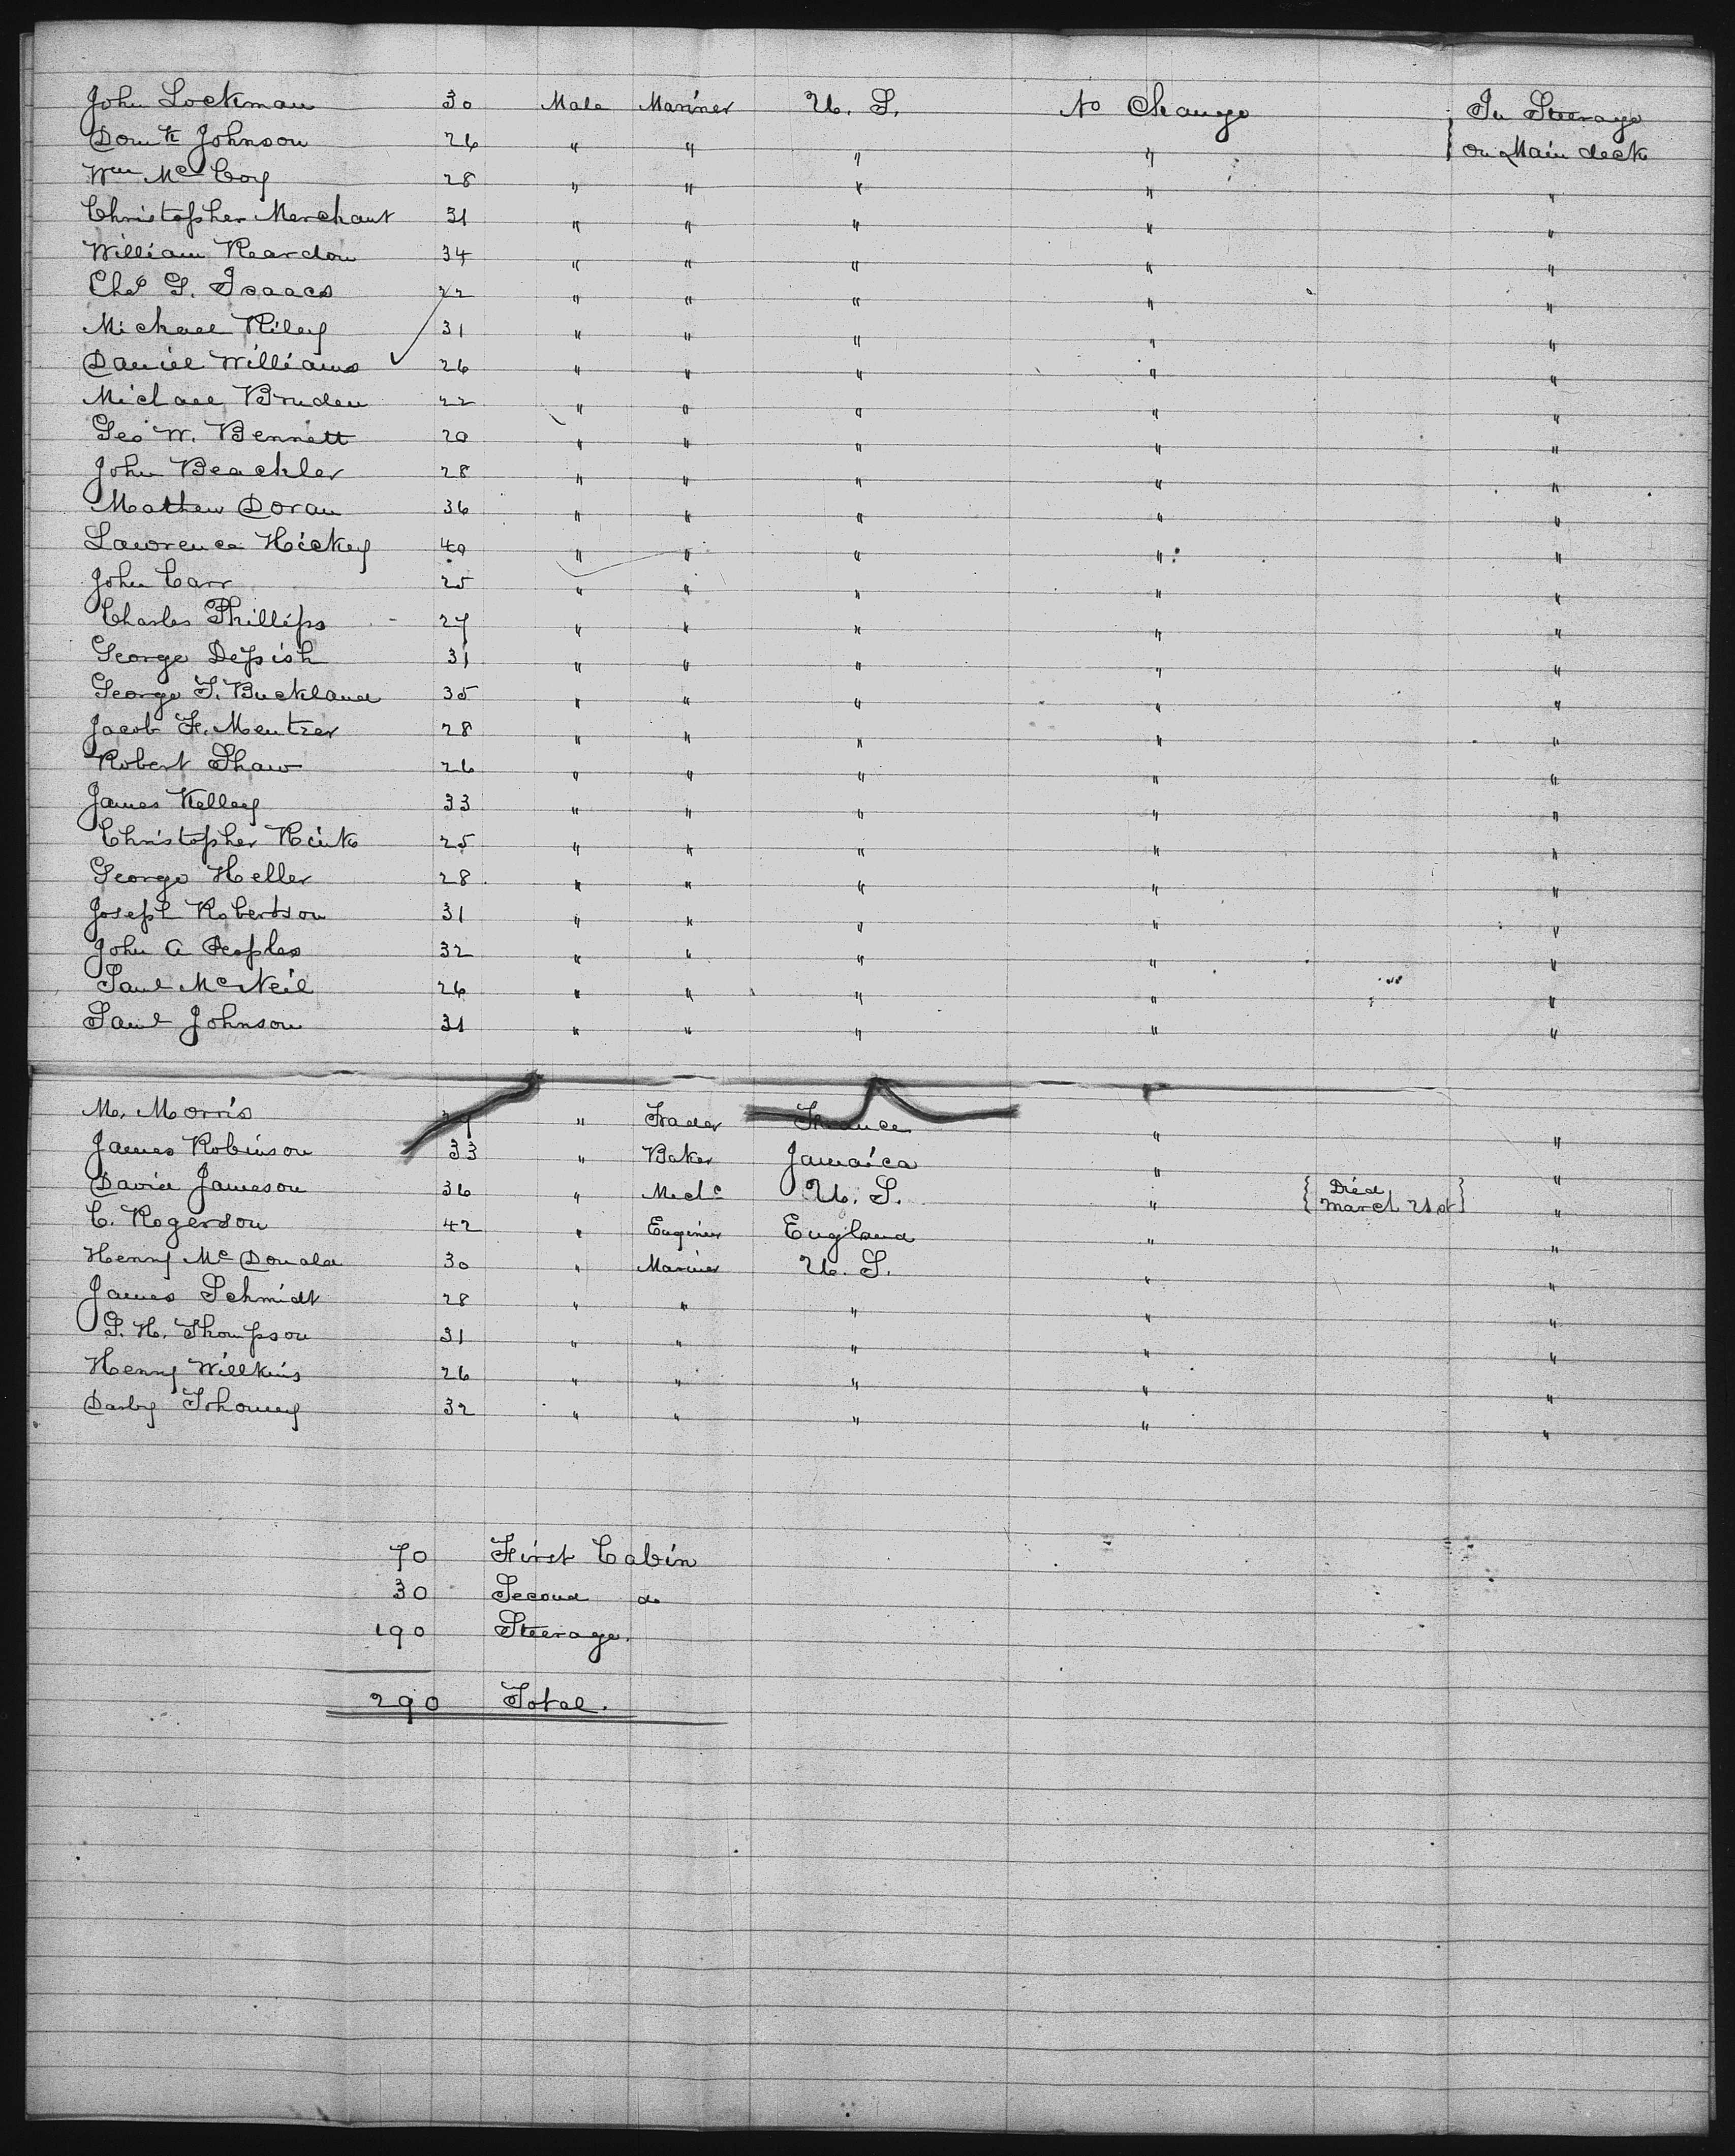 John Lockman 30 Male Mariner U. S. No Change In Steerage
Domk Johnson 26 " " " " on Main deck
Wm McCoy 28 " " " " "
Christopher Merchant 31 " " " " "
William Reardon 34 " " " " "
Chas G. Isaacs 22 " " " " "
Michael Riley 31 " " " " "
Daniel Williams 26 " " " " "
Michael Bruden 22 " " " " "
Geo W. Bennett 20 " " " " "
John Beackler 28 " " " " "
Mathew Doran 36 " " " " "
Lawrence Hickey 40 " " " " "
John Carr 25 " " " " "
Charles Phillips 27 " " " " "
George Depish 31 " " " " "
George T. Buckland 35 " " " " "
Jacob F. Mentzer 28 " " " " "
Robert Shaw 26 " " " " "
James Kelley 33 " " " " "
Christopher 25 " " " " "
George Heller 28 " " " " "
Joseph Robertson 31 " " " " "
John A Peoples 32 " " " " "
Saml McNeil 26 " " " " "
Saml Johnson 31 " " " " "
M. Morris " Trader France " "
James Robinson 33 " Baker Jamaica " "
David Jameson 36 " Mechc U. S. " Died March 21st "
C. Rogerson 42 " Engineer England " "
Henry McDonald 30 " Mariner U. S. " "
James Schmidt 28 " " " " "
S. H. Thompson 31 " " " " "
Henry Willkins 26 " " " " "
Darby 32 " " " " "
70 First Cabin
30 Second do
190 Steerage.
290 Total.